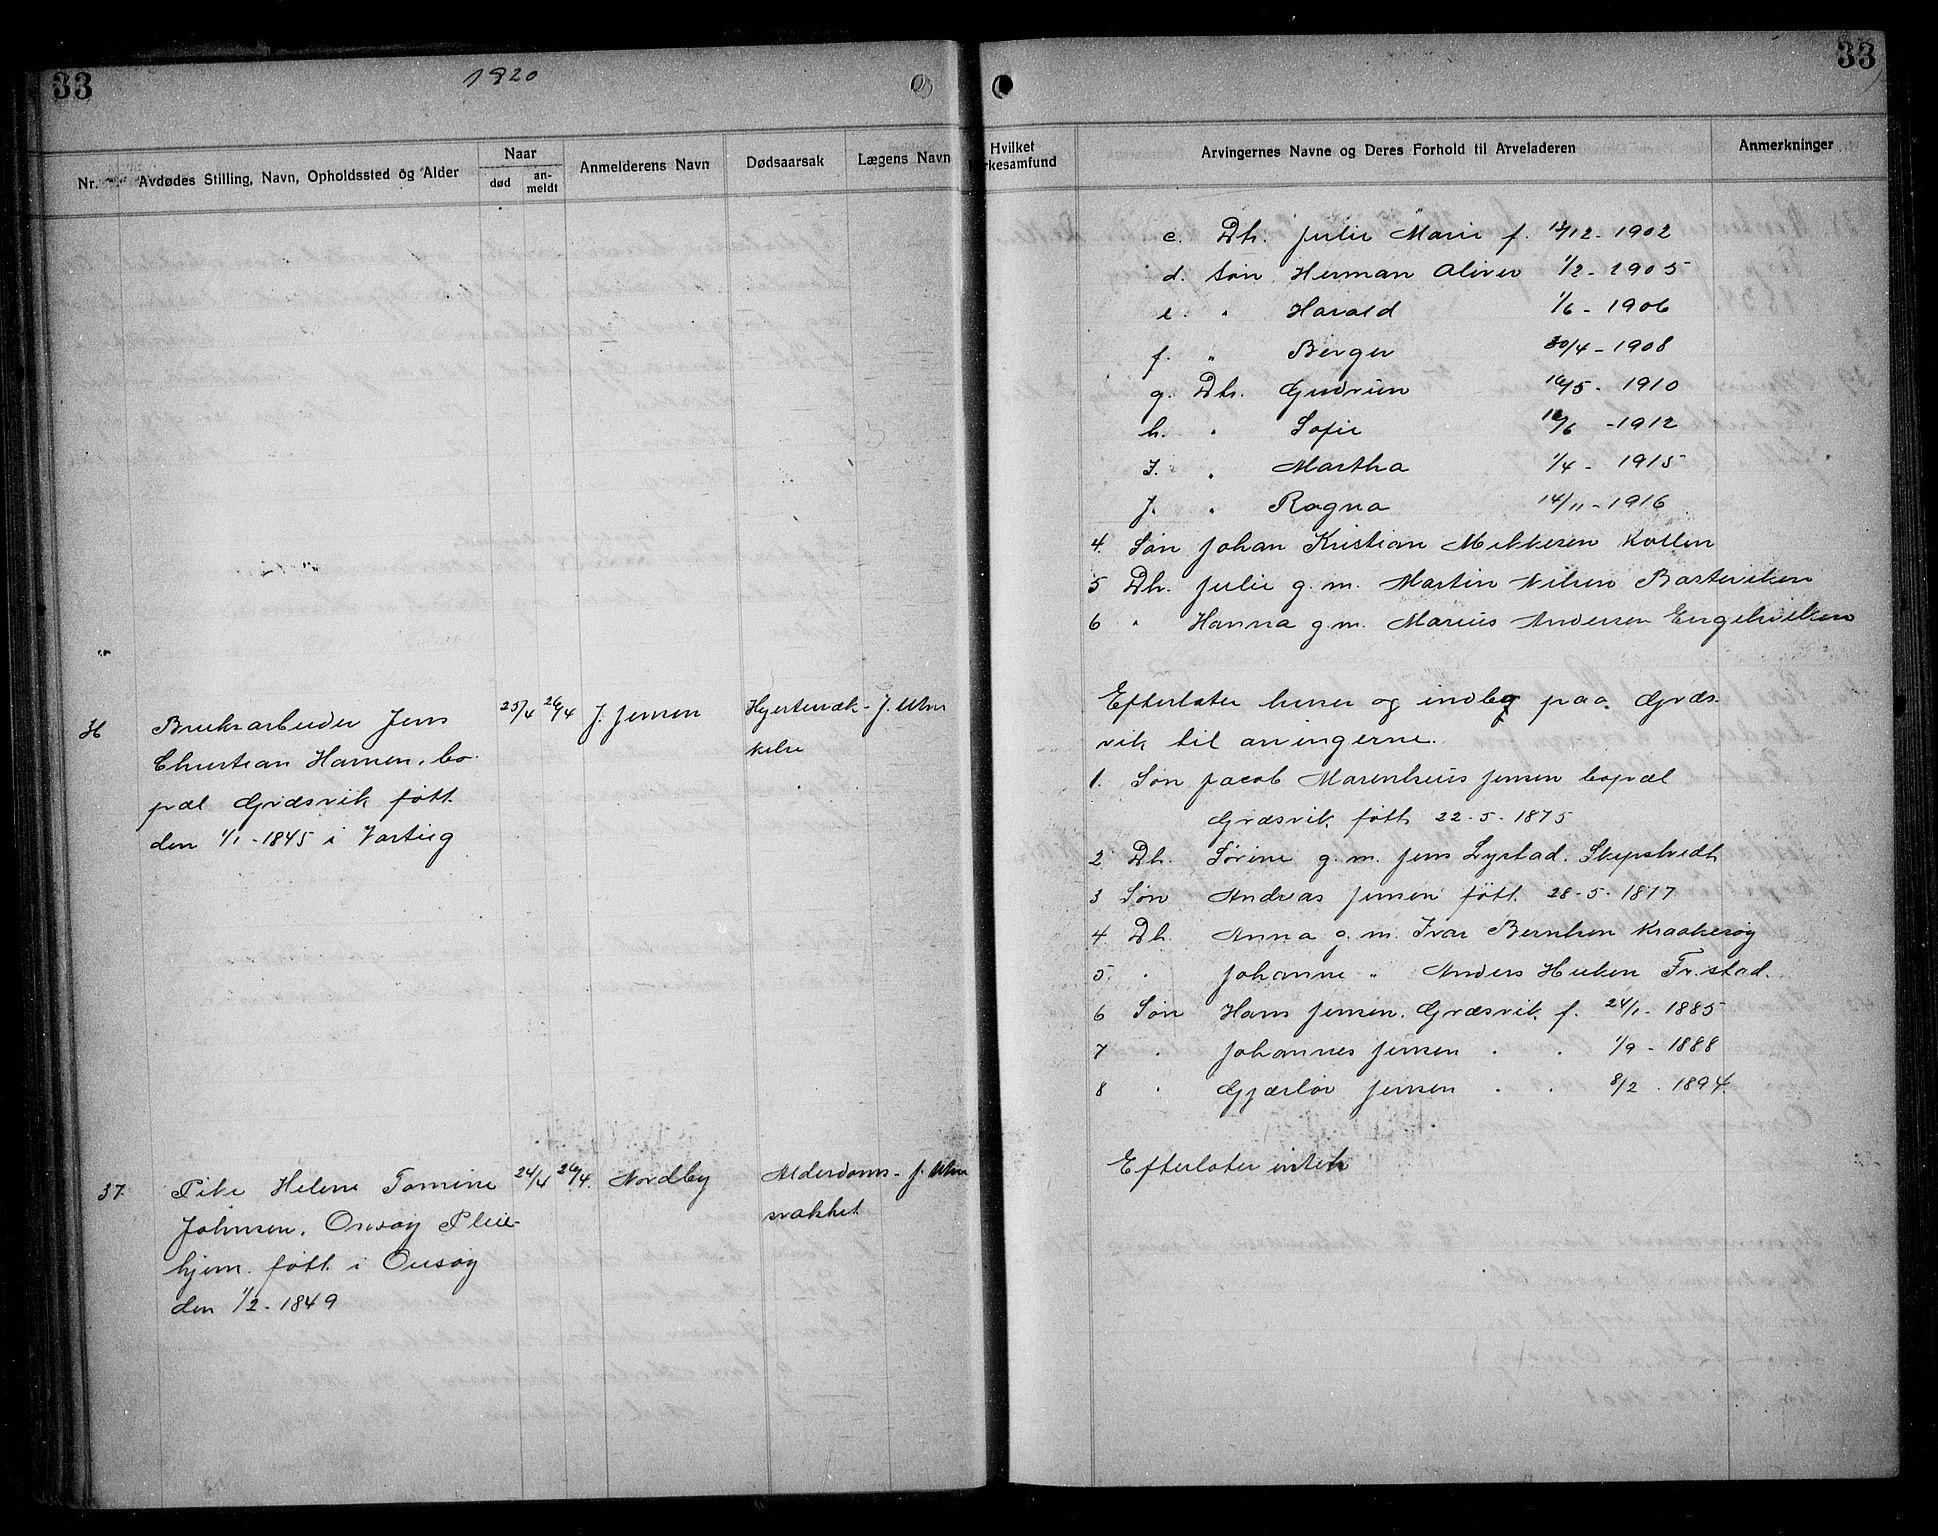 33
1920
33
Nr.
Avdødes Stilling, Navn, Opholdssted og Alder
Naar
død
an-
meldt
Anmelderens Navn
Dødsaarsak
Lægens Navn
Hvilket
rkesamfund
Arvingernes Navne og Deres Forhold til Arveladeren
Anmerkninger
c. Dtr. Julie Marie f. 12/12 - 1902
d. Søn Herman Oliver 1/2 - 1905
e. " Harald 1/6 - 1906
f. " Berger 30/4 - 1908
g. Dtr. Gudrun 16/5 - 1910
h. " Sofie /6 - 1912
I. " Martha 1/4 - 1915
J. " Ragna 14/11 - 1916
4. Søn Johan Kristian Mikkelsen Kollen
5 Dtr. Julie g. m. Martin Nilsen Basteviken
6 " Hanna g.m. Marius Andersen Engelsviken
36
Bruksarbeider Jens
Christian Hansen, bo-
pæl Græsvik født
den 1/1 - 1845 i Varteig
25/4 26/4
J. Jensen
Hjertesvæk-
kelse
J. Uhre
Efterlater huser og indbo paa Græs-
vik til arvingerne.
1. Søn Jacob Marenhius Jensen bopæl
Græsvik født 22-5-1875
2 Dtr. Sørine g. m. Jens Lystad. Skjepstvedt
3 Søn Andreas Jensen født 28-5-1877
4. Dtr. Anna g. m. Ivar Berntsen Kraakerøy
5 " Johanne " Anders Fr.stad.
6 Søn Hans Jensen. Græsvik f. 24/1 - 1885
7 " Johannes Jensen " " 1/9 - 1888
8 " Gjærløv Jensen " " 8/2 - 1894
37
Pike Helene Tomine
Johnsen, Onsøy Pleie-
hjem. født i Onsøy
den 1/2 - 1849
24/4 26/4.
Nordby
Alderdoms-
svakhet
J. Uhre
Efterlater intet